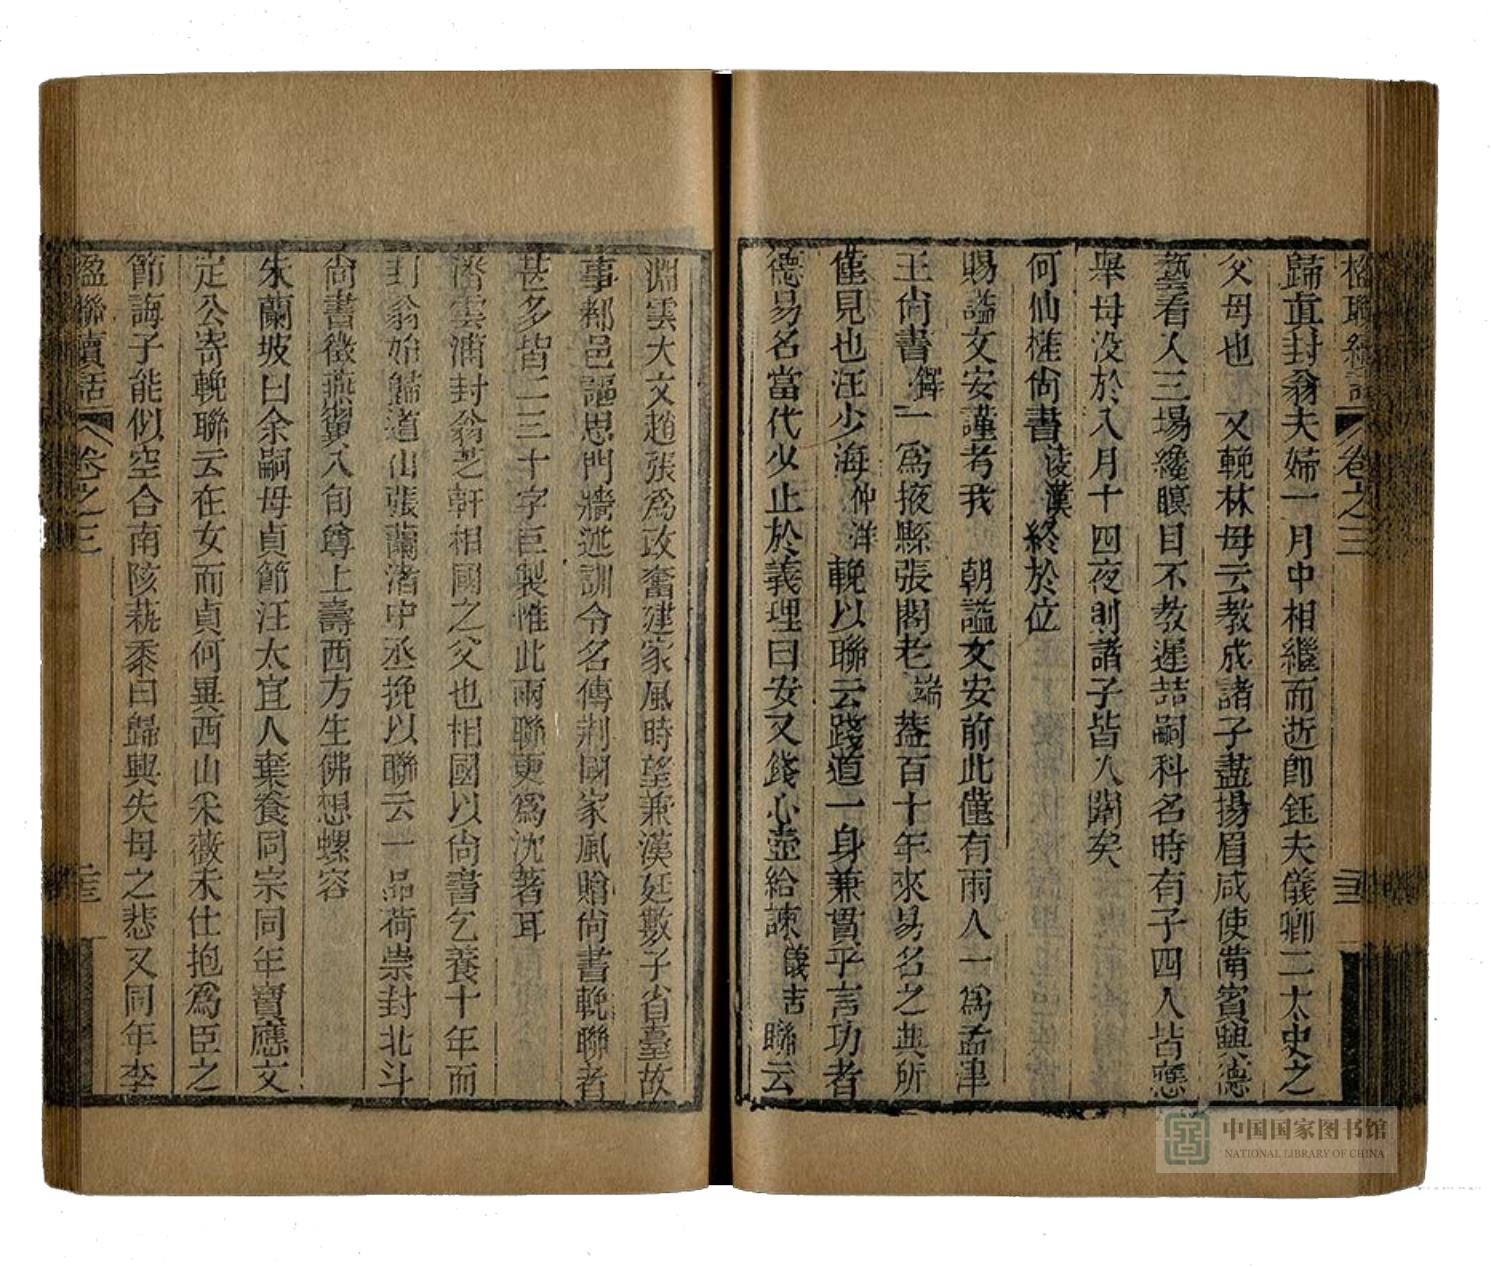 楹聯續話 卷之三
歸真封翁夫婦一月中相繼而逝卽鈺夫儀卿二太史之
父母也 又輓林母云教成諸子盡揚眉咸使備賓興德
藝看人三場纔瞑目不教遲喆嗣科名時有子四人皆應
舉母没於八月十四夜則諸子皆入闈矣
何仙槎尚書淩漢終於位
賜諡文安謹考我 朝諡文安前此僅有兩人一為孟津
王尚書鐸一為掖縣張閣老端蓋百十年來易名之典所
僅見也汪少海仲洋輓以聯云踐道一身兼貫乎言功者
德易名當代少止於義理曰安又錢心壺給諫儀吉聯云
淵雲大文趙張為政奮建家風時望兼漢廷數子省臺故
事鄉邑謳思門牆述訓令名傳荆國家風贈尚書輓聯者
甚多皆二三十字巨製惟此兩聯更為沈著耳
潘雲浦封翁芝軒相國之父也相國以尚書乞養十年而
封翁始歸道山張蘭渚中丞挽以聯云一品荷崇封北斗
尚書徵燕翼八旬尊上壽西方生佛想螺容
朱蘭坡曰余嗣母貞節汪太宜人棄養同宗同年寶應文
定公寄輓聯云在女而貞何異西山采薇未仕抱為臣之
節誨子能似空合南陔蓺黍曰歸興失母之悲又同年李
楹聯續話 卷之三
中国国家图书馆
NATIONAL LIBRARY OF CHINA